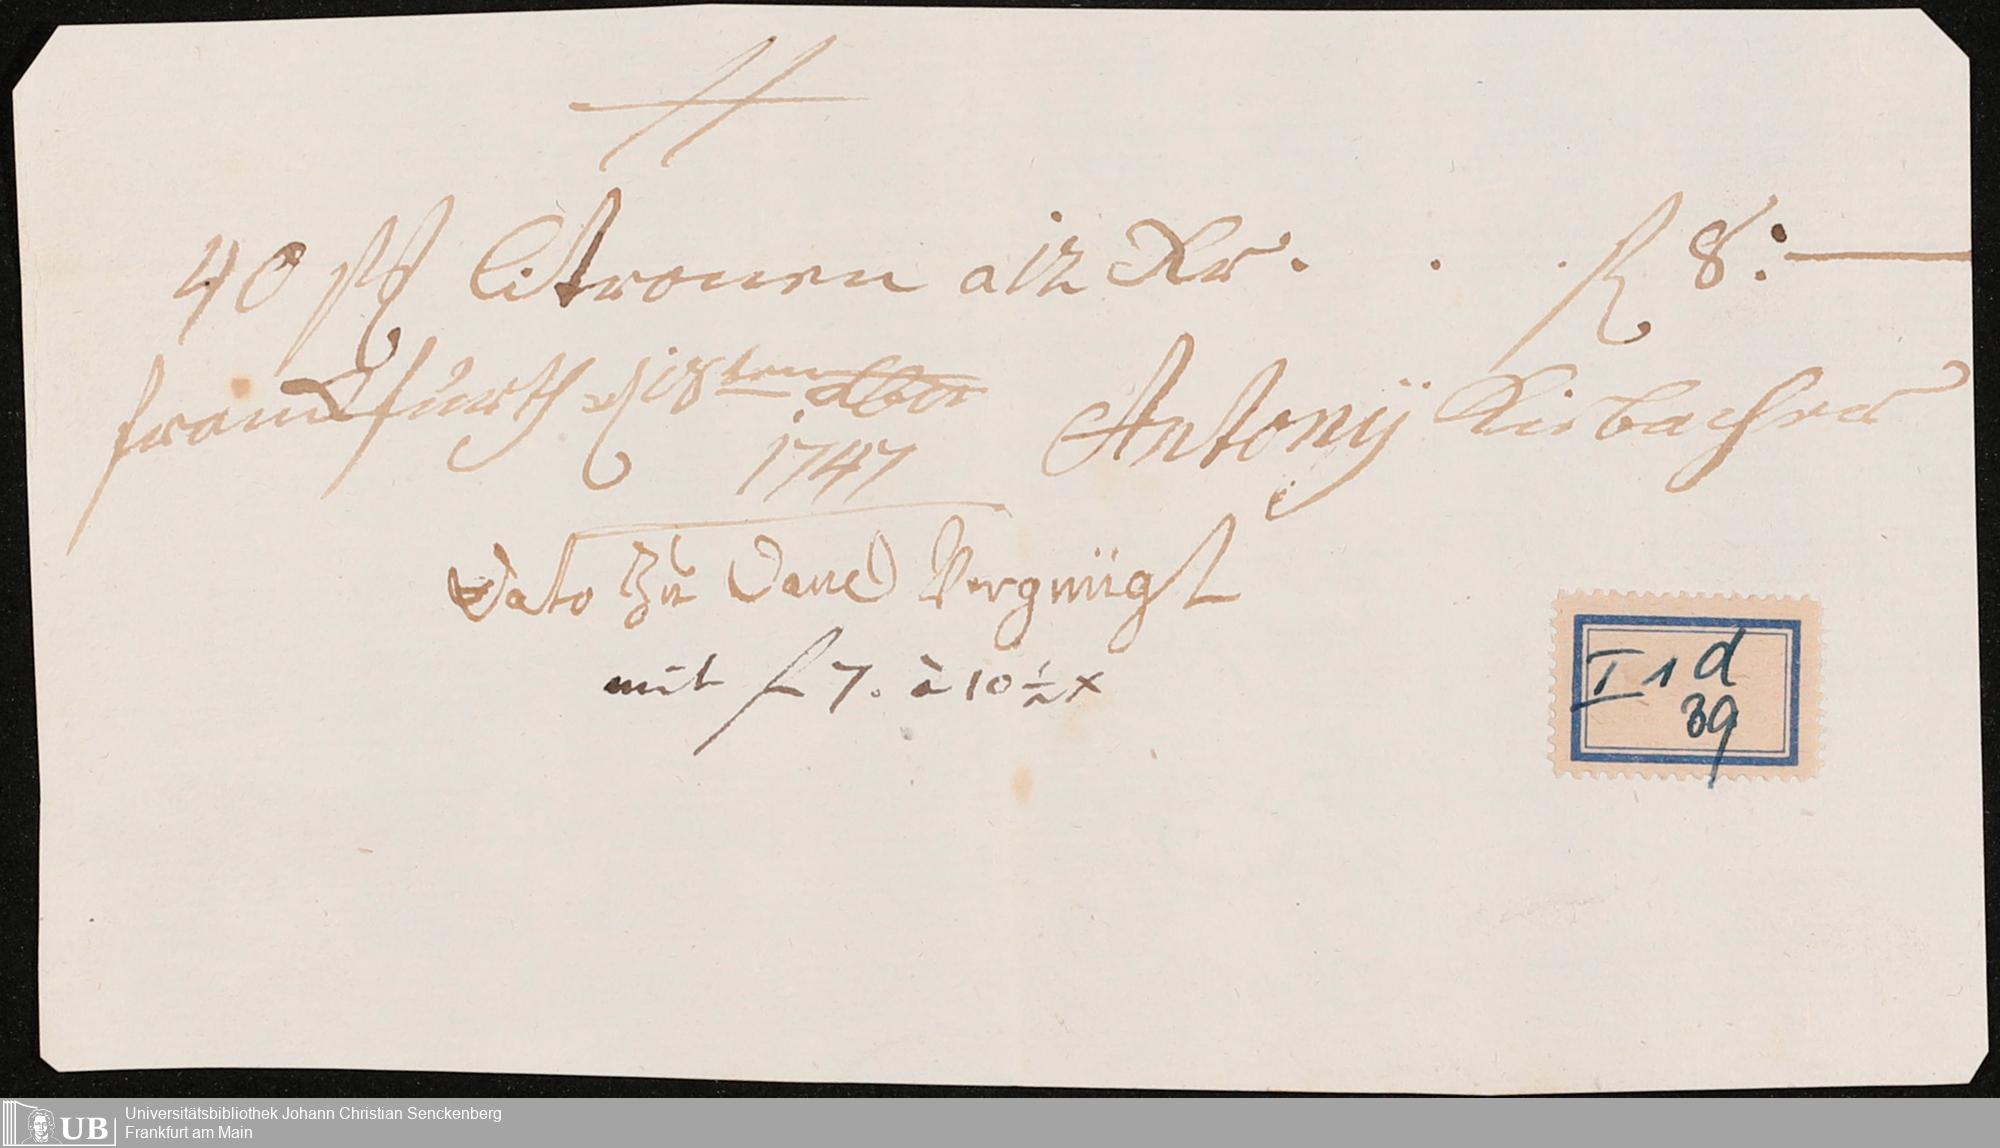 40 St Citronen a 12 Xr. . . f 8:—
franckfurth d 18ten 8br Antonÿ Kirbacher
1747
Dato Zu Danck Vergnügt
mit f 7. à 10 ½ x
I 1 d
39
UB
Universitätsbibliothek Johann Christian Senckenberg
Frankfurt am Main